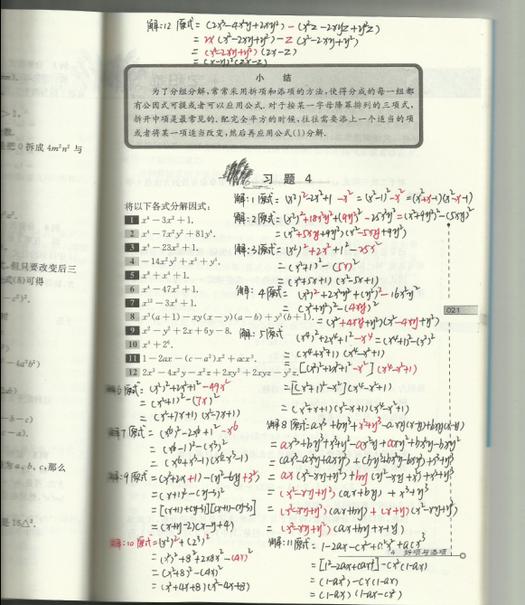 解:12 原式 = (2x³-4x²y+2xy²)-(x²z-2xyz+y²z)
= 2x(x²-2xy+y²)-z(x²-2xy+y²)
= (x²-2xy+y²)(2x-z)
= (x-y)²(2x-z)
小 结
为了分组分解,常常采用拆项和添项的方法,使得分成的每一组都
有公因式可提或者可以应用公式.对于按某一字母降幂排列的三项式,
拆开中项是最常见的.配完全平方的时候,往往需要添上一个适当的项
或者将某一项适当改变,然后再应用公式(1)分解.
把0拆成 4m²n² 与
但只要改变后三
式(8)可得
a,b,c,那么
是 16△².
习 题 4
将以下各式分解因式:
1 x⁴-3x²+1.
2 x⁴-7x²y²+81y⁴.
3 x⁴-23x²+1.
4 -14x²y²+x⁴+y⁴.
5 x⁸+x⁴+1.
6 x⁴-47x²+1.
7 x¹²-3x⁶+1.
8 x³(a+1)-xy(x-y)(a-b)+y³(b+1).
9 x²-y²+2x+6y-8.
10 x⁴+2⁶.
11 1-2ax-(c-a²)x²+acx³.
12 2x³-4x²y-x²z+2xy²+2xyz-y²z.
解:1 原式 = (x²)²-2x²+1-x² = (x²-1)²-x² = (x²+x-1)(x²-x-1)
解:2 原式 = (x²)²+18x²y²+(9y²)²-25x²y² = (x²+9y²)²-(5xy)²
= (x²+5xy+9y²)(x²-5xy+9y²)
解:3 原式 = (x²)²+2x²+1²-25x²
= (x²+1)²-(5x)²
= (x²+5x+1)(x²-5x+1)
解:4 原式 = (x²)²+2x²y²+(y²)²-16x²y²
= (x²+y²)²-(4xy)²
= (x²+4xy+y²)(x²-4xy+y²)
解:5 原式 = (x⁴)²+2x⁴+1²-x⁴ = (x⁴+1)²-(x²)²
= (x⁴+x²+1)(x⁴-x²+1)
= [(x²)²+2x²+1²-x²](x⁴-x²+1)
= [(x²+1)²-x²](x⁴-x²+1)
= (x²+x+1)(x²-x+1)(x⁴-x²+1)
解:6 原式 = (x²)²+2x²+1²-49x²
= (x²+1)²-(7x)²
= (x²+7x+1)(x²-7x+1)
解:7 原式 = (x⁶)²-2x⁶+1²-x⁶
= (x⁶-1)²-(x³)²
= (x⁶+x³-1)(x⁶-x³-1)
解:8 原式 = ax³+by³+x³+y³-axy(x-y)+bxy(x-y)
= ax³+by³+x³+y³-ax²y+axy²+bx²y-bxy²
= (ax³-ax²y+axy²)+(by³+bx²y-bxy²)+x³+y³
= ax(x²-xy+y²)+by(y²-xy+x²)+x³+y³
= (x²-xy+y²)(ax+by)+x³+y³
= (x²-xy+y²)(ax+by)+(x+y)(x²-xy+y²)
= (x²-xy+y²)(ax+by+x+y)
解:9 原式 = (x²+2x+1)-(y²-6y+3²)
= (x+1)²-(y-3)²
= [(x+1)+(y-3)][(x+1)-(y-3)]
= (x+y-2)(x-y+4)
解:10 原式 = (x²)²+(2³)²
= (x²)²+8²+2·8x²-(4x)²
= (x²+8)²-(4x)²
= (x²+4x+8)(x²-4x+8)
解:11 原式 = 1-2ax-cx²+a²x²+acx³
= [1²-2ax+(ax)²]-cx²(1-ax)
= (1-ax)²-cx²(1-ax)
= (1-ax)(1-ax-cx²)
021
4 拆项与添项